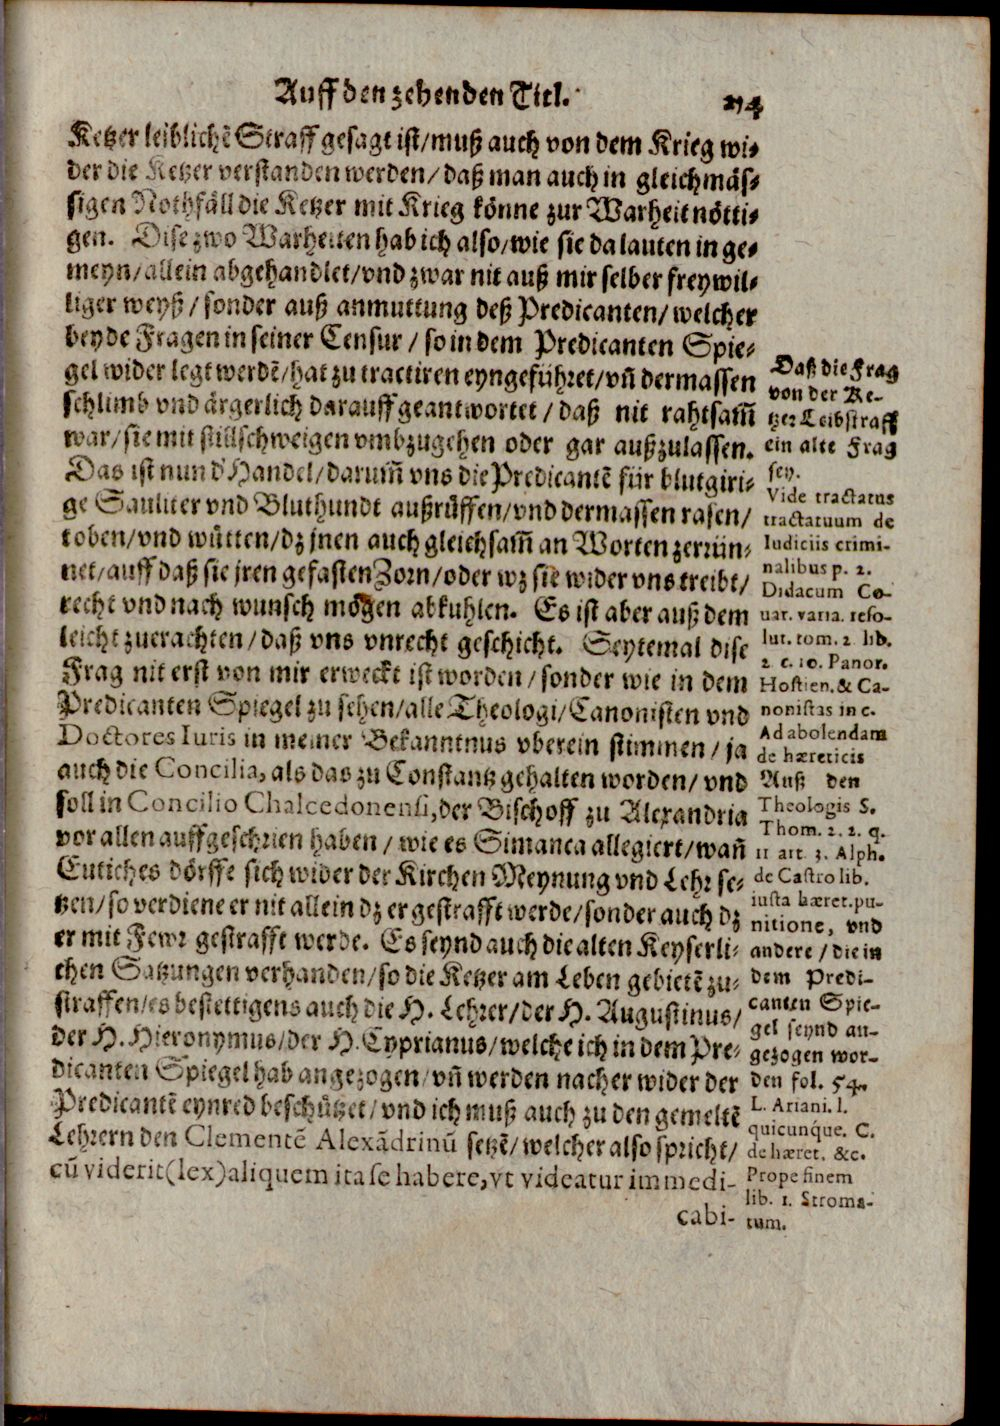 Auff den zehenden Titl.
274
Ketzer leiblichẽ Straff gesagt ist/muß auch von dem Krieg wi⸗
der die Ketzer verstanden werden/daß man auch in gleichmäs⸗
sigen Nothfäll die Ketzer mit Krieg könne zur Warheit nötti⸗
gen. Dise zwo Warheiten hab ich also/wie sie da lauten in ge⸗
meyn/allein abgehandlet/vnd zwar nit auß mir selber freywil⸗
liger weyß/sonder auß anmuttung deß Predicanten/welcher
beyde Fragen in seiner Censur/so in dem Predicanten Spie⸗
gel wider legt werdẽ/hat zu tractiren eyngeführet/vñ dermassen
schlimb vnd ärgerlich darauff geantwortet/daß nit rahtsam̃
war/sie mit stillschweigen vmbzugehen oder gar außzulassen.
Das ist nun d' Handel/darum̃ vns die Predicantẽ für blutgiri⸗
ge Sauliter vnd Bluthundt außrüffen/vnd dermassen rasen/
toben/vnd wütten/dz jnen auch gleichsam̃ an Worten zerrün⸗
net/auff daß sie jren gefasten Zorn/oder wz sie wider vns treibt/
recht vnd nach wunsch mögen abkuhlen. Es ist aber auß dem
leicht zuerachten/daß vns vnrecht geschicht. Seytemal dise
Frag nit erst von mir erweckt ist worden/sonder wie in dem
Predicanten Spiegel zu sehen/alle Theologi/Canonisten vnd
Doctores Iuris in meiner Bekanntnus vberein stimmen/ja
auch die Concilia, als das zu Constantz gehalten worden/vnd
soll in Concilio Chalcedonensi, der Bischoff zu Alexandria
vor allen auffgeschrien haben/wie es Simanca allegiert/wañ
Eutiches dörffe sich wider der Kirchen Meynung vnd Lehr se⸗
tzen/so verdiene er nit allein dz er gestrafft werde/sonder auch dz
er mit Fewr gestrafft werde. Es seynd auch die alten Keyserli⸗
chen Satzungen verhanden/so die Ketzer am Leben gebietẽ zu⸗
straffen/es bestettigens auch die H. Lehrer/der H. Augustinus/
der H. Hieronymus/der H. Cyprianus/welche ich in dem Pre⸗
dicanten Spiegel hab angezogen/vñ werden nacher wider der
Predicantẽ eynred beschützet/vnd ich muß auch zu den gemeltẽ
Lehrern den Clementẽ Alexãdrinũ setzẽ/welcher also spricht/
cũ viderit(lex)aliquem ita se habere,vt videatur immedi-
cabi-
Daß die Frag
von der Ke-
tzer Leibstraff
ein alte Frag
sey.
Vide tractatus
tractatuum de
Iudiciis crimi-
nalibus p. 2.
Didacum Co-
uar. varia. reso-
lut. tom. 2 lib.
2. c. 10. Panor.
Hostien. & Ca-
nonistas in c.
Ad abolendam
de hæreticis
Auß den
Theologis S.
Thom. 2. 2. q.
11 art. 3. Alph.
de Castro lib.
iusta hæret. pu-
nitione, vnd
andere/die in
dem Predi-
canten Spie-
gel seynd an-
gezogen wor-
den fol. 54.
L. Ariani. l.
quicunque. C.
de hæret. &c.
Prope finem
lib. 1. Stroma-
tum.